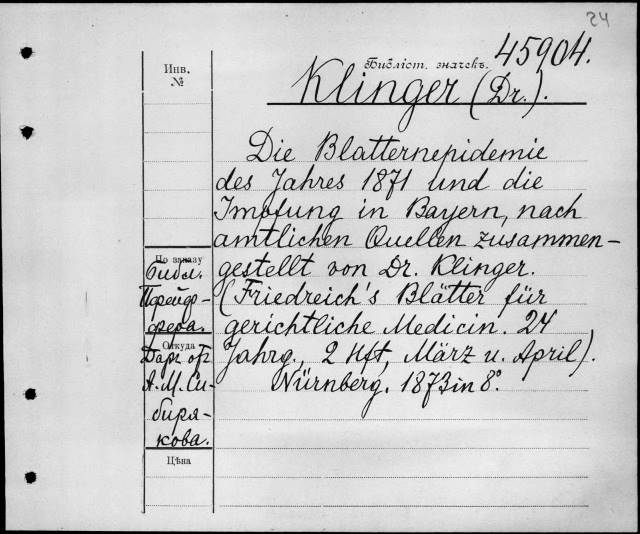 24
Библіот. значекъ. 45904.
Инв.
№
Klinger (Dr.).
Die Blatternepidemie
des Jahres 1871 und die
Impfung in Bayern, nach
amtlichen Quellen zusammen-
gestellt von Dr. Klinger.
(Friedreich's Blätter für
gerichtliche Medicin. 24
Jahrg., 2 Hft, März u. April).
Nürnberg. 1873 in 8°.
По заказу
Библ.
Пфейф-
фера.
Откуда
Дар. от
А. М. Си-
биря-
кова.
Цѣна